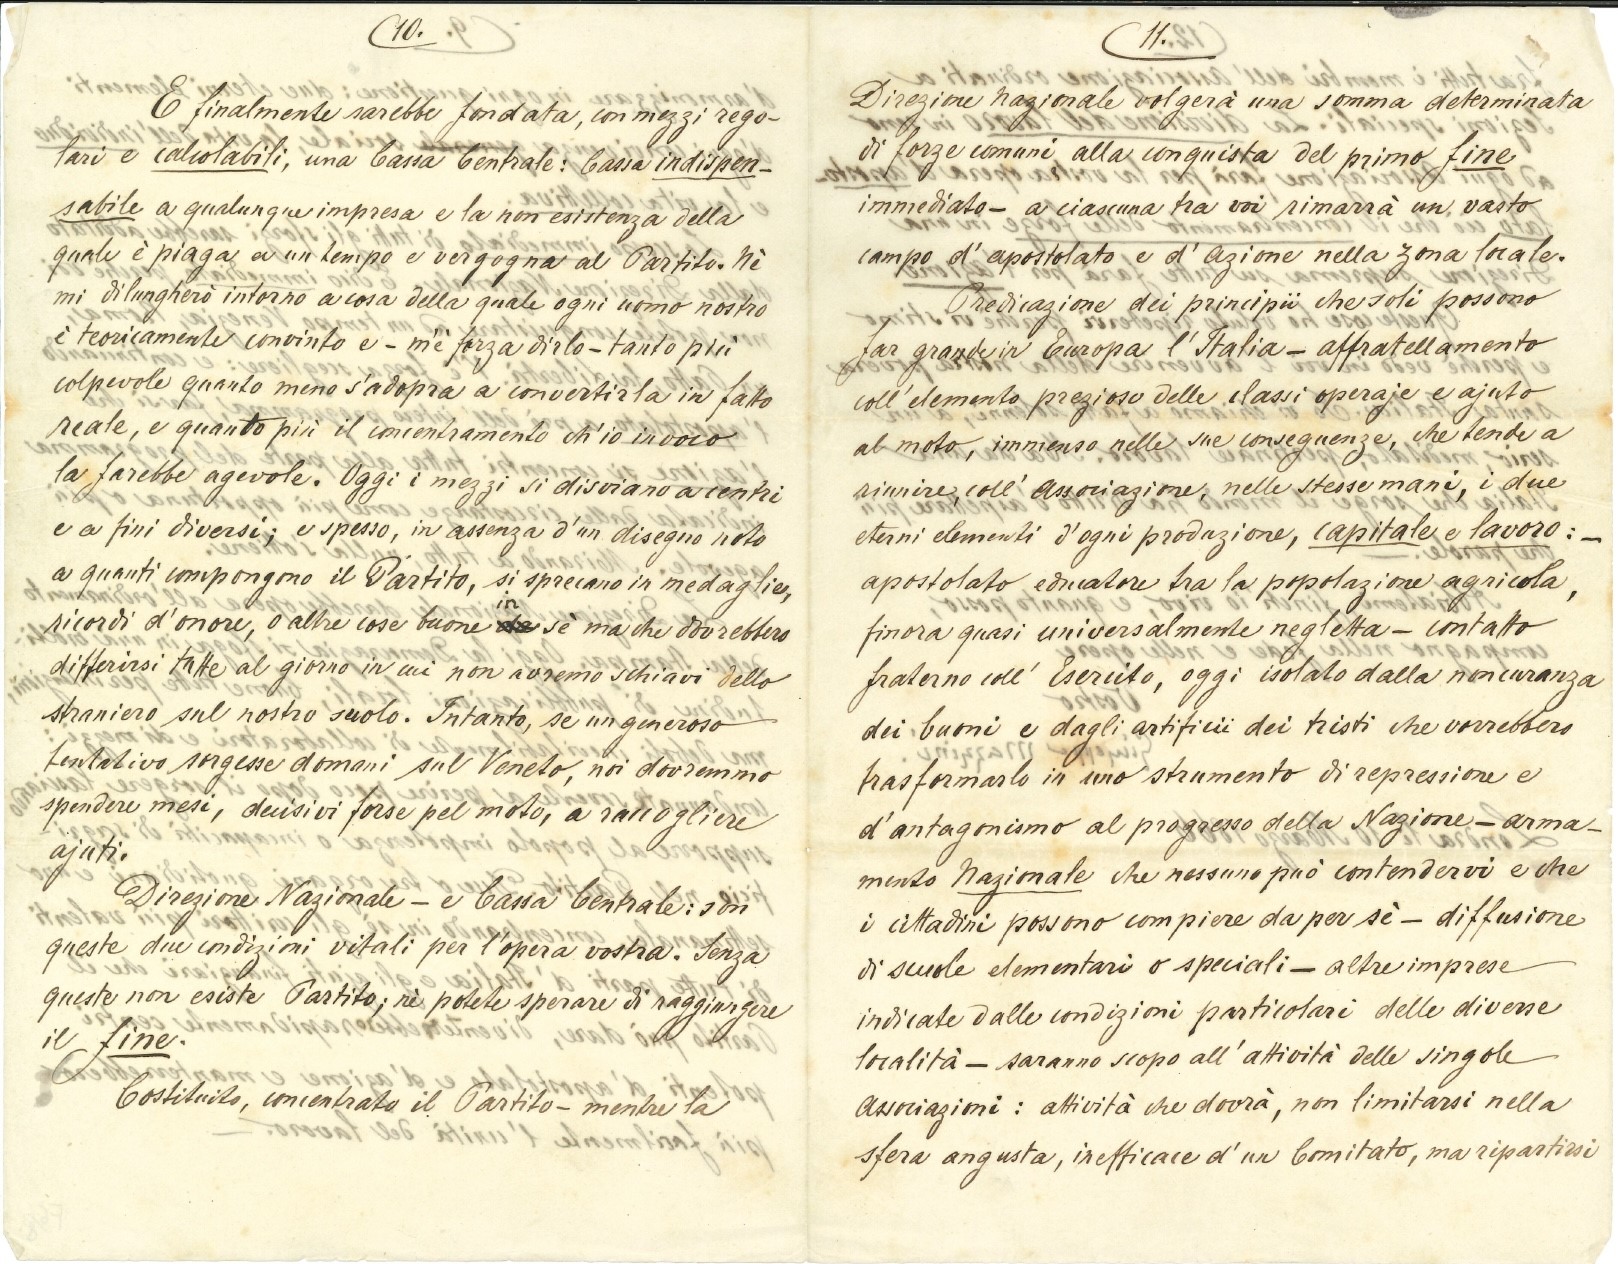 10.
E finalmente sarebbe fondata, con mezzi rego-
lari e calcolabili, una Cassa Centrale: Cassa indispen-
sabile a qualunque impresa e la non esistenza della
quale è piaga a un tempo e vergogna al Partito. Nè
mi dilungherò intorno a cosa della quale ogni uomo nostro
è teoricamente convinto e – m'è forza dirlo – tanto più
colpevole quanto meno s'adopra a convertirla in fatto
reale, e quanto più il concentramento ch'io invoco
la farebbe agevole. Oggi i mezzi si disviano a centri
e a fini diversi; e spesso, in assenza d'un disegno noto
a quanti compongono il Partito, si sprecano in medaglie,
ricordi d'onore, o altre cose buone in sè ma che dovrebbero
differirsi tutte al giorno in cui non avremo schiavi dello
straniero sul nostro suolo. Intanto, se un generoso
tentativo sorgesse domani sul Veneto, noi dovremmo
spendere mesi, decisivi forse pel moto, a raccogliere
ajuti.
Direzione Nazionale – e Cassa Centrale: son
queste due condizioni vitali per l'opera vostra. Senza
queste non esiste Partito; nè potete sperare di raggiungere
il fine.
Costituito, concentrato il Partito – mentre la
11.
Direzione Nazionale volgerà una somma determinata
di forze comuni alla conquista del primo fine
immediato – a ciascuna tra voi rimarrà un vasto
campo d'apostolato e d'Azione nella zona locale.
Predicazione dei principii che soli possono
far grande in Europa l'Italia – affratellamento
coll'elemento prezioso delle classi operaje e ajuto
al moto, immenso nelle sue conseguenze, che tende a
riunire, coll'Associazione, nelle stesse mani, i due
eterni elementi d'ogni produzione, capitale e lavoro: –
apostolato educatore tra la popolazione agricola,
finora quasi universalmente negletta – contatto
fraterno coll'Esercito, oggi isolato dalla noncuranza
dei buoni e dagli artificii dei tristi che vorrebbero
trasformarlo in uno strumento di repressione e
d'antagonismo al progresso della Nazione – arma-
mento Nazionale che nessuno può contendervi e che
i cittadini possono compiere da per sè – diffusione
di scuole elementari o speciali – altre imprese
indicate dalle condizioni particolari delle diverse
località – saranno scopo all'attività delle singole
Associazioni: attività che dovrà, non limitarsi nella
sfera angusta, inefficace d'un Comitato, ma ripartirsi